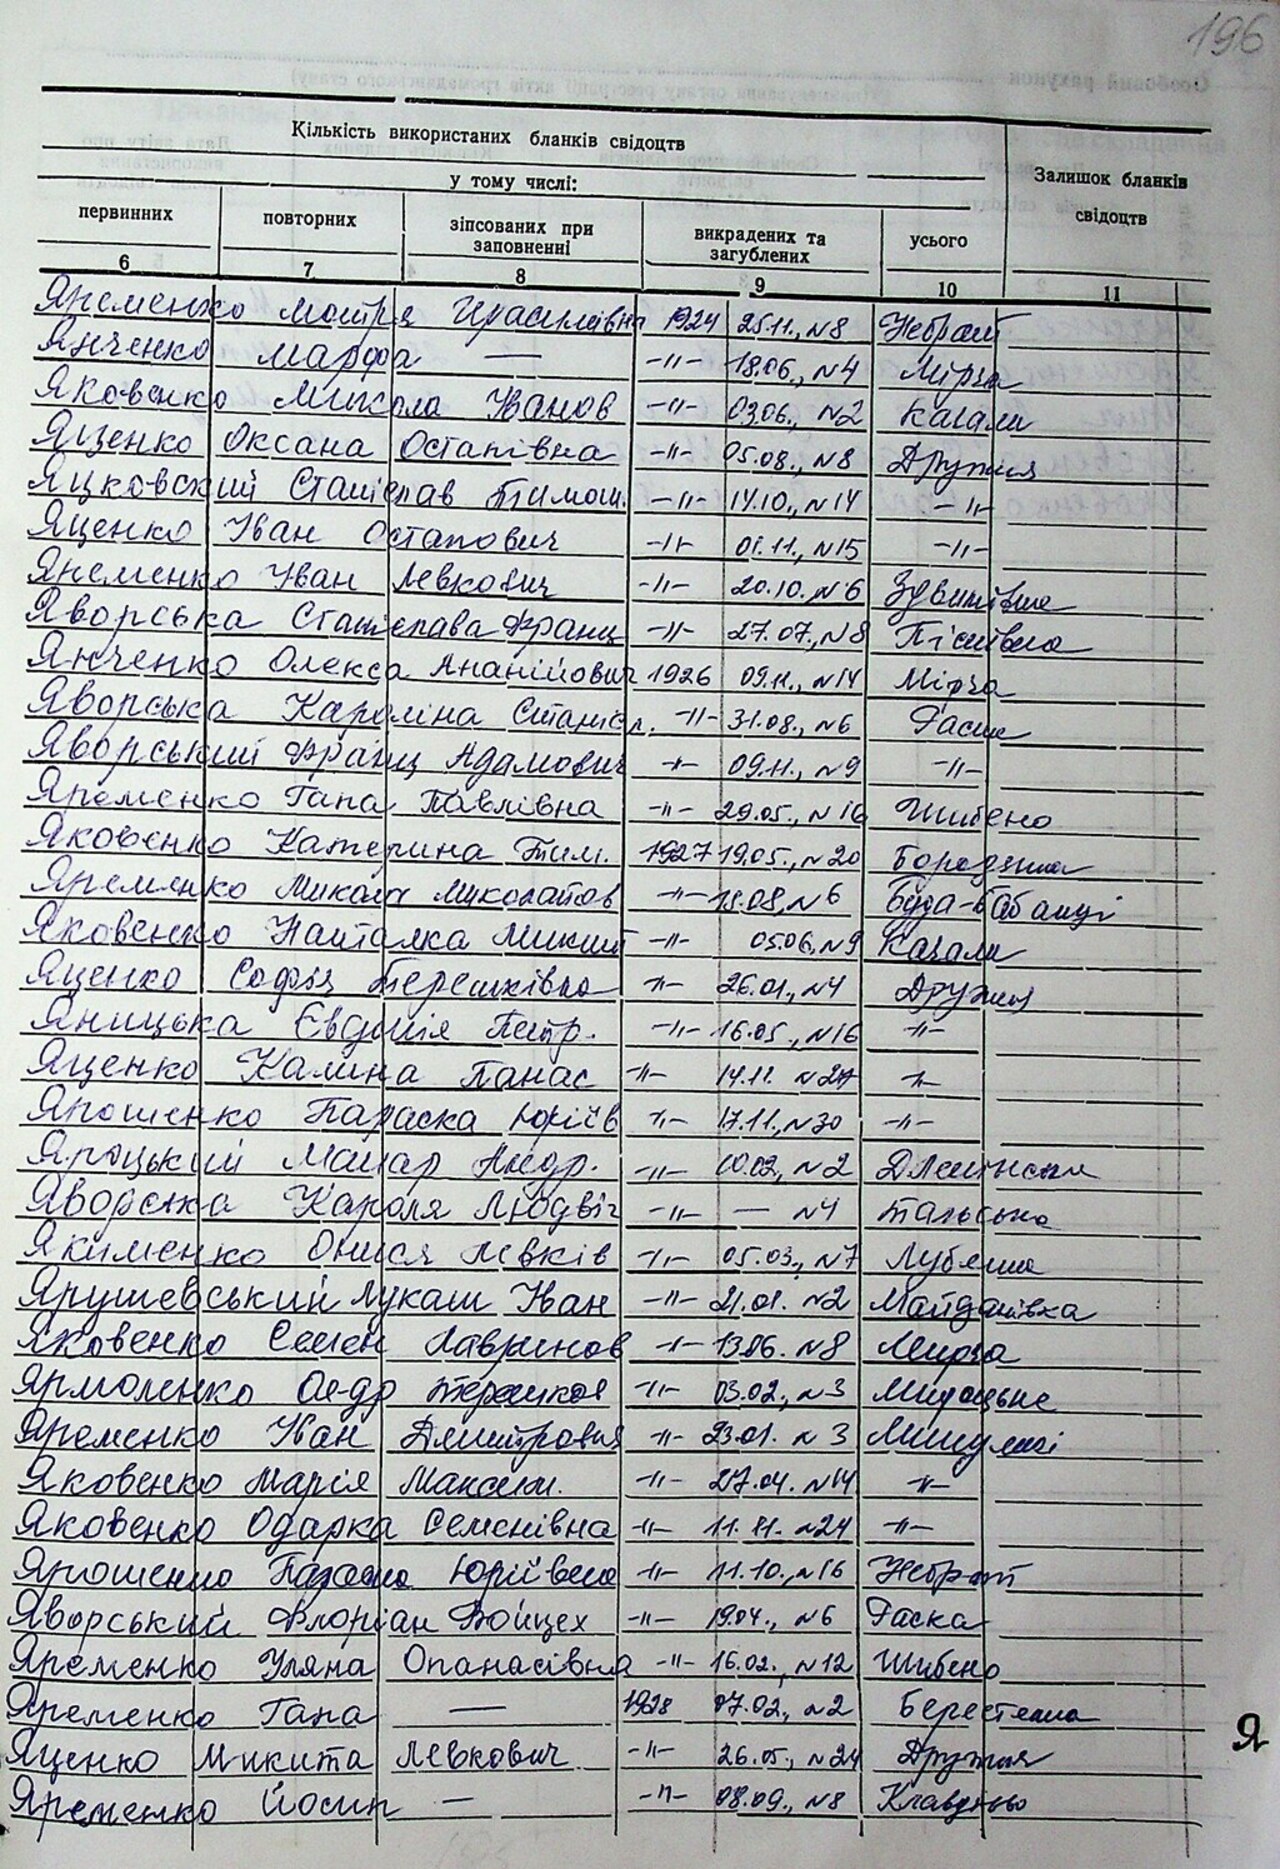 196
Кількість використаних бланків свідоцтв
Залишок бланків свідоцтв
у тому числі:
первинних повторних зіпсованих при заповненні викрадених та загублених усього
6 7 8 9 10 11
Яременко Мотря Герасимівна 1924 25.11., N8 Небрат
Янченко Марфа — -"- 18.06., N4 Мірча
Яковенко Микола Іванов -"- 03.06., N2 Качали
Яценко Оксана Остапівна -"- 05.08., N8 Дружня
Яцковский Станіслав Тимош. -"- 14.10., N14 -"-
Яценко Іван Остапович -"- 01.11., N15 -"-
Яременко Іван Левкович -"- 20.10. N6 Здвижівка
Яворська Станіслава Франц -"- 27.07., N8 Пісківка
Янченко Олекса Ананійович 1926 09.11., N14 Мірча
Яворська Кароліна Станісл. -"- 31.08., N6 Раска
Яворський Франц Адамович -"- 09.11., N9 -"-
Яременко Гапа Павлівна -"- 29.05., N16 Шибено
Яковенко Катерина Тим. 1927 19.05., N20 Бородянка
Яременко Микола Миколайов -"- 18.08, N6 Буда-Бабинці
Яковенко Наталка Микит -"- 05.06, N9 Качали
Яценко Софія Терешківна -"- 26.01., N4 Дружня
Яницька Євдокія Петр. -"- 16.05., N16 -"-
Яценко Калина Панас -"- 14.11. N27 -"-
Ярошенко Параска Юріїв -"- 17.11., N30 -"-
Яроцький Макар Андр. -"- 10.02, N2
Яворська Кароля Людвіг -"- — N4 Тальська
Якименко Онися Левків -"- 05.03., N7 Луб'янка
Ярушевський Лукаш Іван -"- 21.01. N2 Майданівка
Яковенко Семен Лавринов -"- 13.06. N8 Мирча
Ярмоленко Ол-др Терешков -"- 03.02., N3 Мироцьке
Яременко Іван Дмитрович -"- 23.01. N 3 Микуличі
Яковенко Марія Максим. -"- 27.04. N14 -"-
Яковенко Одарка Семенівна -"- 11.11. N24 -"-
Ярошенко Параска Юріївна -"- 11.10., N16 Небрат
Яворський Флоріан Войцех -"- 19.04., N6 Раска
Яременко Уляна Опанасівна -"- 16.02., N12 Шибено
Яременко Гапа — 1928 07.02., N2 Берестянка
Яценко Микита Левкович -"- 26.05., N24 Дружня
Яременко Йосип — -"- 08.09., N8 Клавдієво
Я